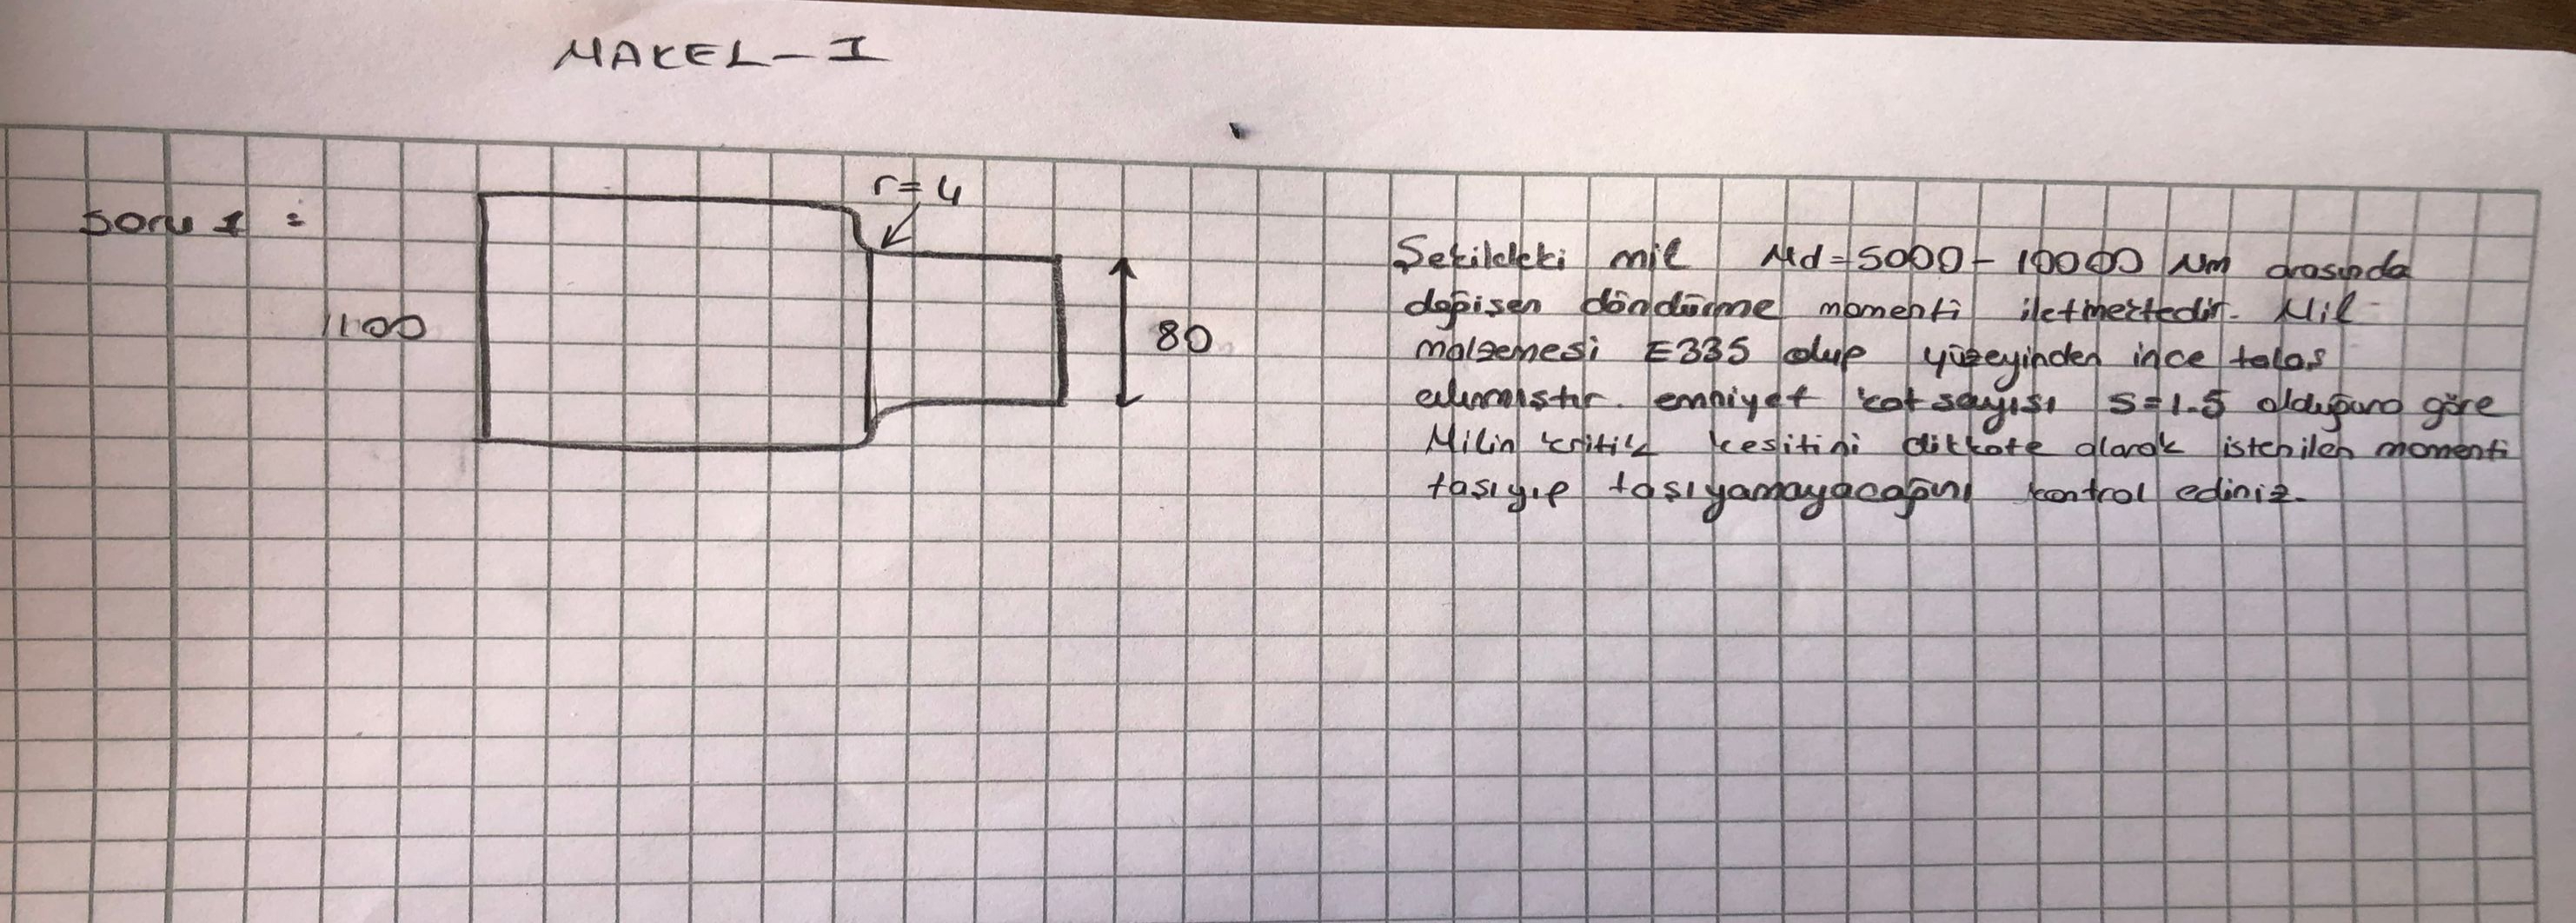 MAKEL-I
Soru 1 :
r=4
1100
80
Şekildeki mil Md=5000-10000 Nm arasında
değişen döndürme momenti iletmektedir. Mil
malzemesi E335 olup yüzeyinden ince talaş
alınmıştır. emniyet katsayısı S=1.5 olduğuna göre
Milin kritik kesitini dikkate alarak istenilen momenti
taşıyıp taşıyamayacağını kontrol ediniz.